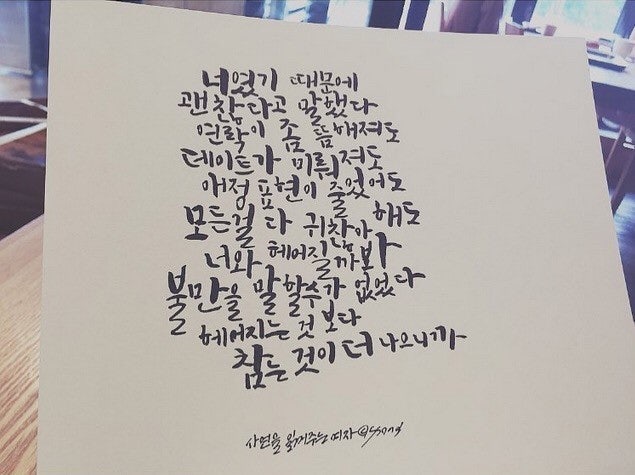 너였기 때문에
괜찮다고 말했다
연락이 좀 뜸해져도
데이트가 미뤄져도
애정 표현이 줄었어도
모든걸 다 귀찮아 해도
너와 헤어질까봐
불만을 말할수가 없었다
헤어지는 것 보다
참는 것이 더 나으니까
사연을 읽어주는 여자@ssong